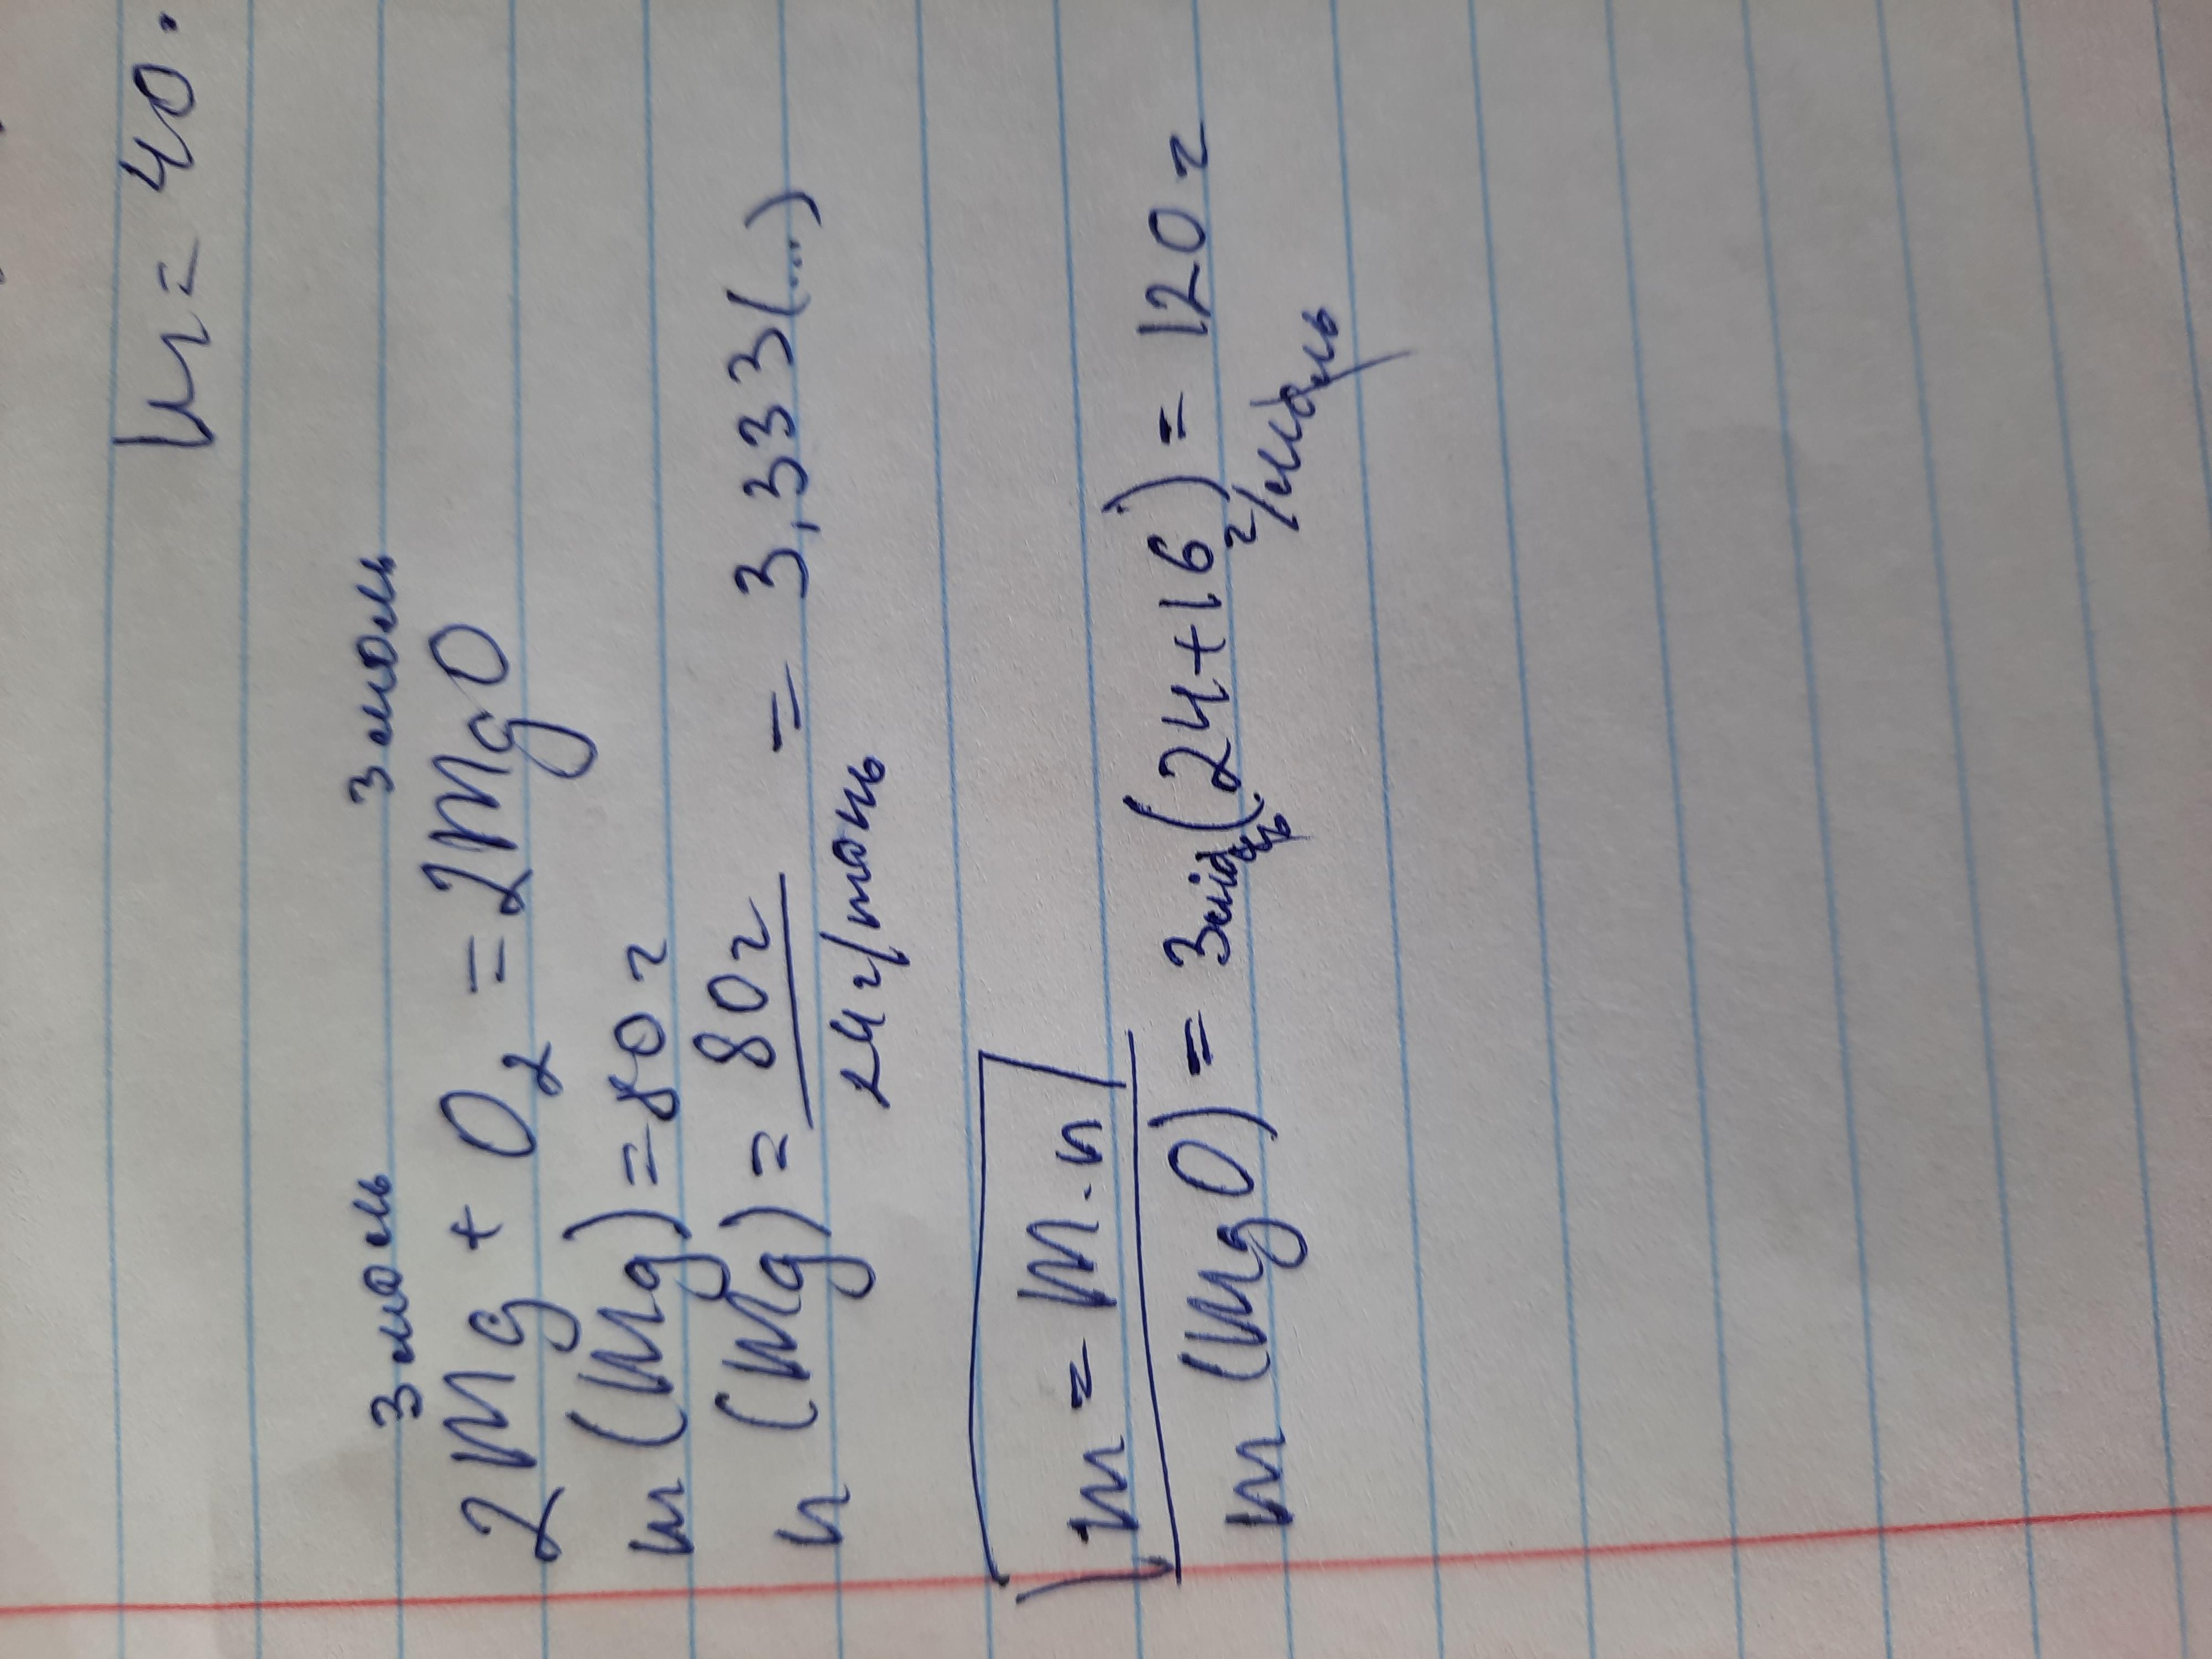 m = 40.
3 моль 3 моль
2Mg + O₂ = 2MgO
m (Mg) = 80 г
n (Mg) = 80г / 24 г/моль = 3,333(...)
m = M · n
m (MgO) = 3 моль (24+16) г/моль = 120 г